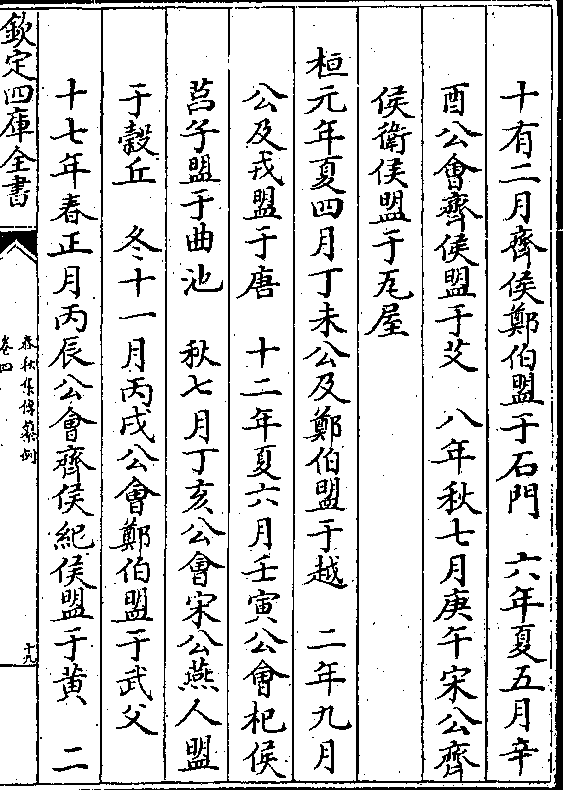 十有二月齊侯鄭伯盟于石門　六年夏五月辛
酉公會齊侯盟于艾　八年秋七月庚午宋公齊
侯衛侯盟于瓦屋
桓元年夏四月丁未公及鄭伯盟于越　二年九月
公及戎盟于唐　十二年夏六月壬寅公會杞侯
莒子盟于曲池　秋七月丁亥公會宋公燕人盟
于穀丘　冬十一月丙戌公會鄭伯盟于武父
十七年春正月丙辰公會齊侯紀侯盟于黄　二
欽定四庫全書
春秋集傳纂例
卷四
十九